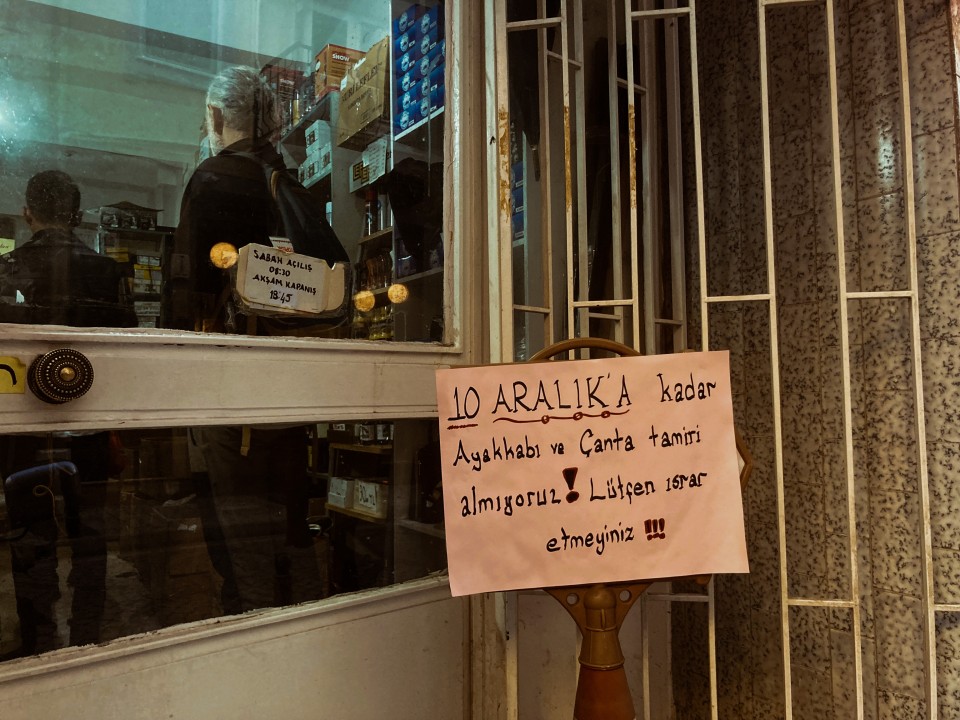 SNOW
SABAH AÇILIŞ
08:30
AKŞAM KAPANIŞ
18:45
10 ARALIK'A kadar
Ayakkabı ve Çanta tamiri
almıyoruz! Lütfen ısrar
etmeyiniz !!!